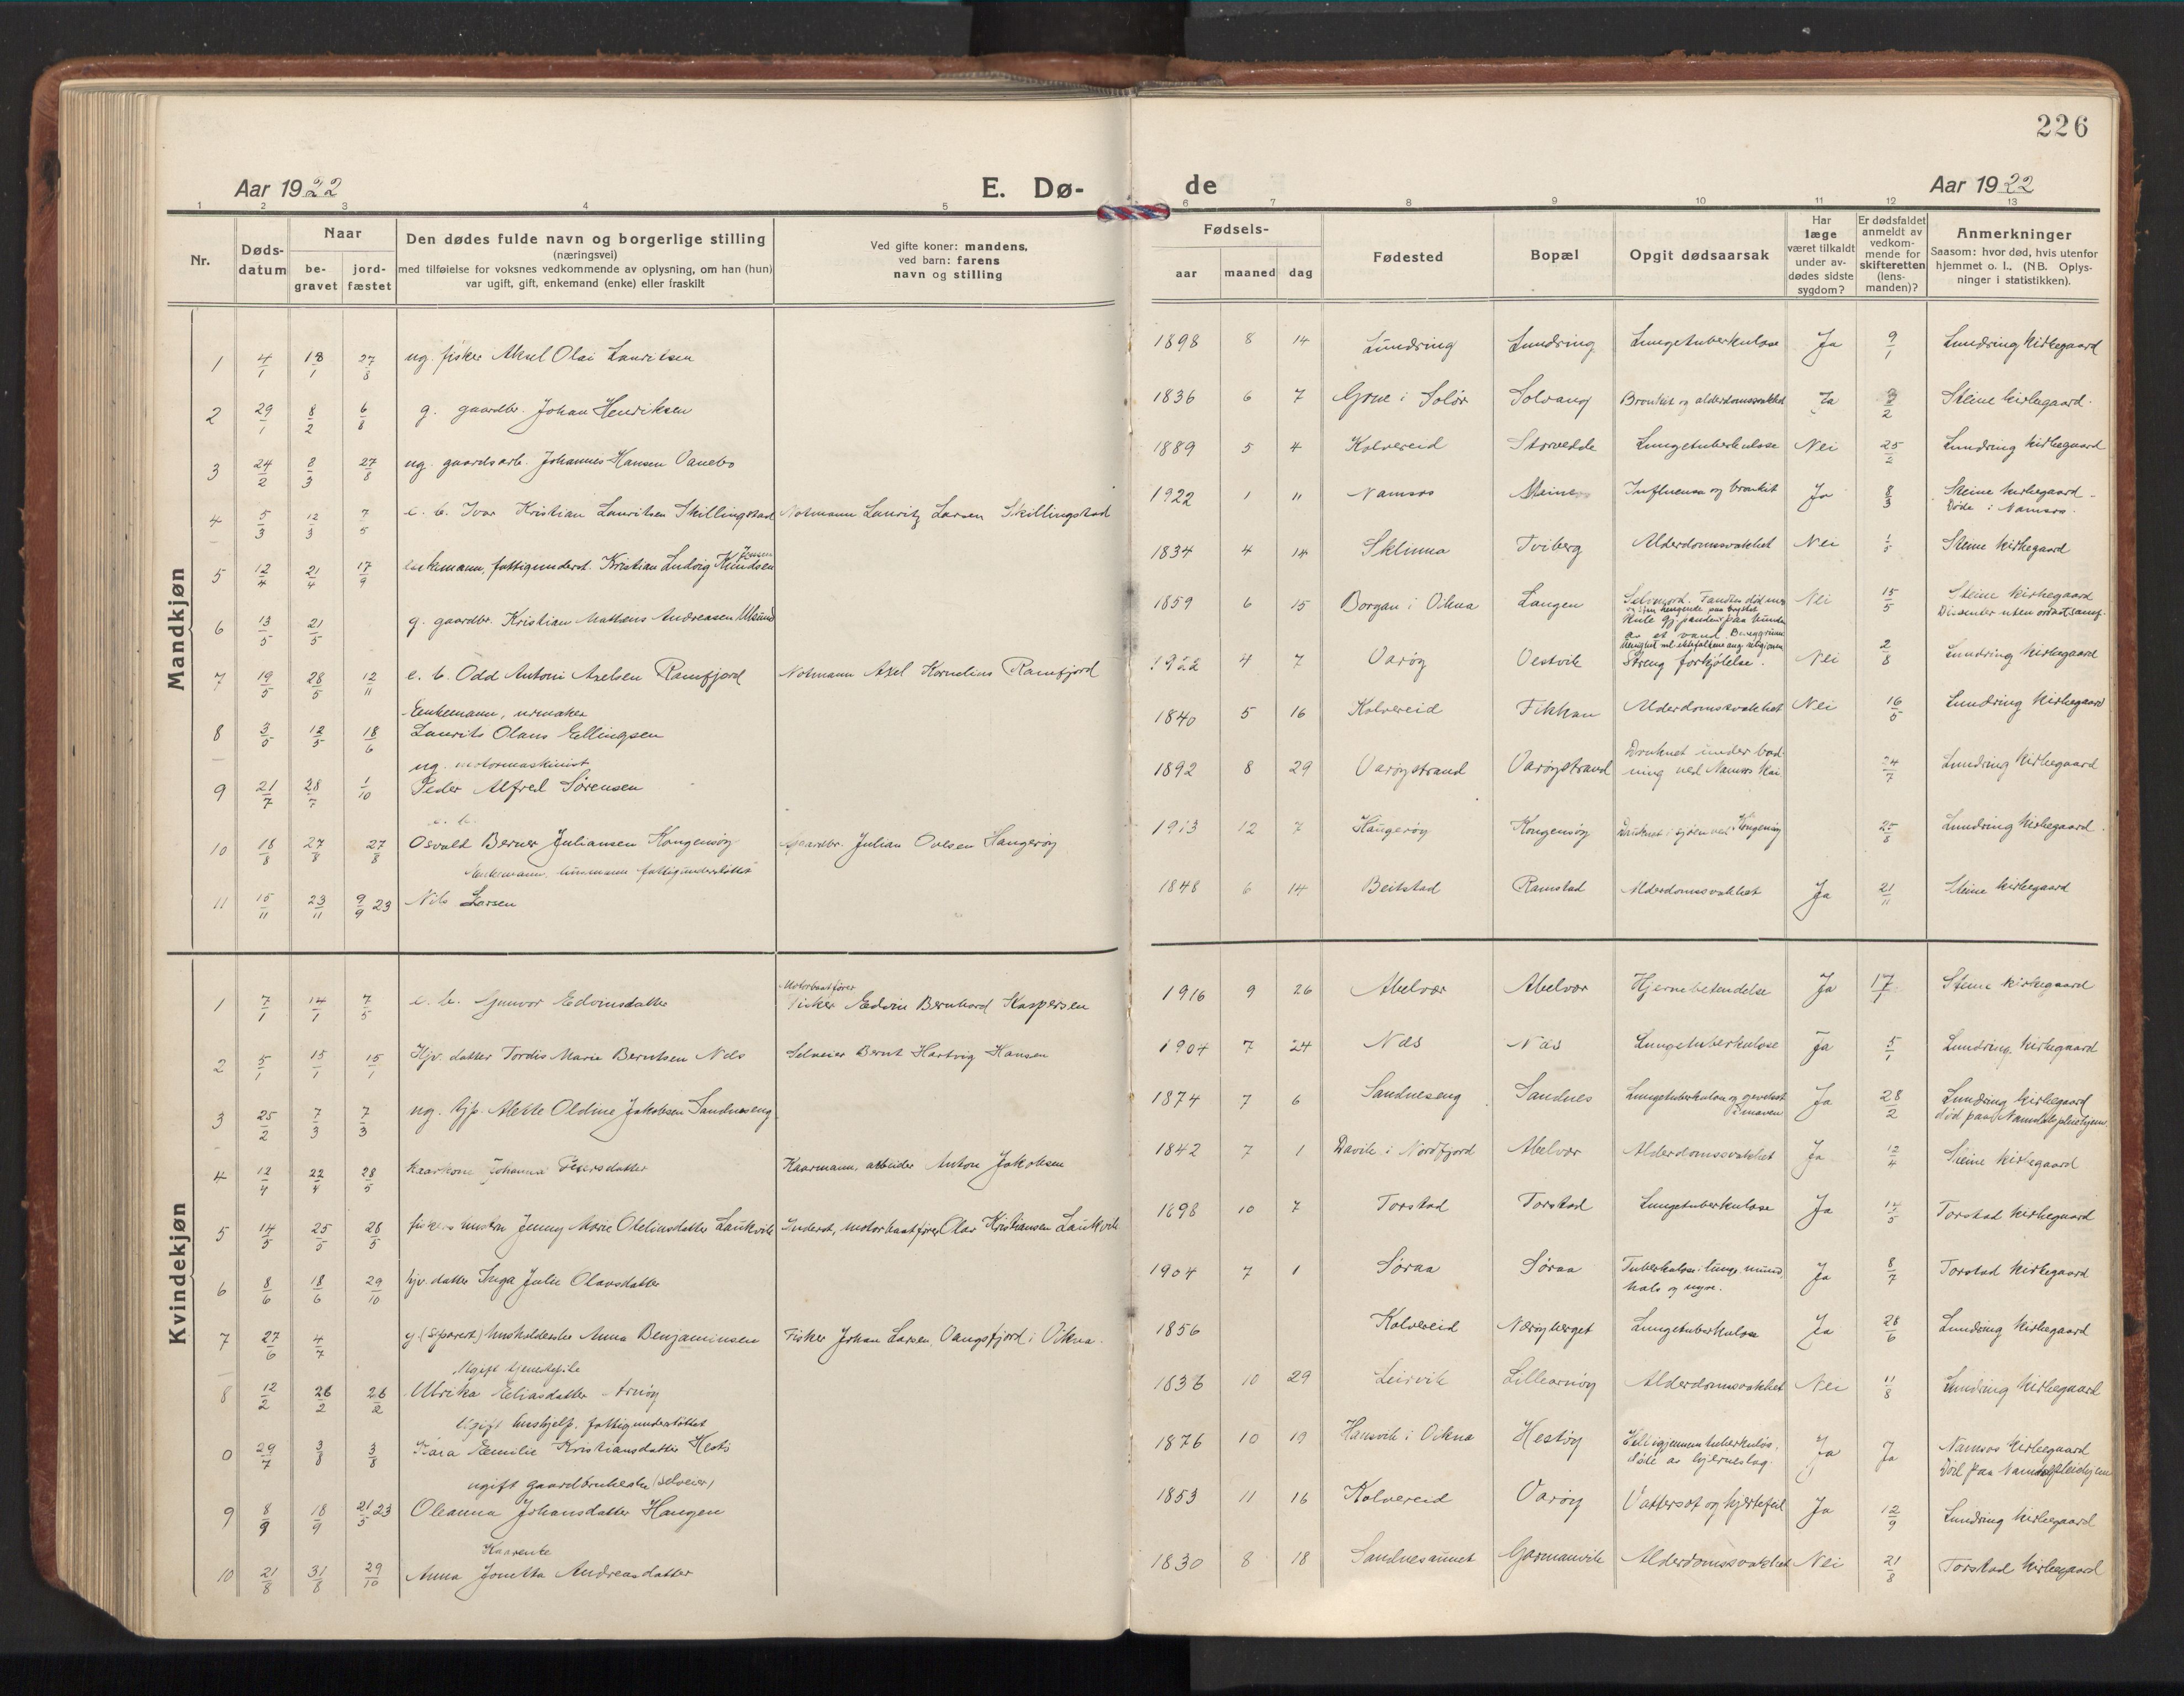 226
Aar 1922 E. Dø- de Aar 1922
1 2 3 4 5 6 7 8 9 10 11 12 13
Nr.
Døds-datum
Naar
be-gravet
jord-fæstet
Den dødes fulde navn og borgerlige stilling
(næringsvei)
med tilføielse for voksnes vedkommende av oplysning, om han (hun)
var ugift, gift, enkemand (enke) eller fraskilt
Ved gifte koner: mandens,
ved barn: farens
navn og stilling
Fødsels-
aar maaned dag
Fødested
Bopæl
Opgit dødsaarsak
Har
læge
været tilkaldt
under av-
dødes sidste
sygdom?
Er dødsfaldet
anmeldt av
vedkom-
mende for
skifteretten
(lens-
manden)?
Anmerkninger
Saasom: hvor død, hvis utenfor
hjemmet o. l., (NB. Oplys-
ninger i statistikken).
Mandkjøn
1 4/1 18/1 27/8 ug. fisker Aksel Olai Lauritsen 1898 8 14 Lundring Lundring Lungetuberkulose Ja 9/1 Lundring kirkegaard
2 29/1 8/2 6/8 g. gaardbr. Johan Henriksen 1836 6 7 Grue i Solør Solvang Bronkit og alderdomssvakhet Ja Steine kirkegaard.
3 24/2 8/3 27/8 ug. gaardsarb. Johannes Hansen 1889 5 4 Kolvereid Storvedde Lungetuberkulose Nei 25/2 Lundring kirkegaard
4 5/3 12/3 7/5 e. b. Ivar Kristian Lauritsen Skillingstad Notmann Lauritz Larsen Skillingstad 1922 1 11 Namsos Steine Influensa og bronkit Ja 8/3 Steine kirkegaard
Døde i Namsos.
5 12/4 21/4 17/9 enkemann, fattigunderst. Kristian Ludvig Jensen Knudsen 1834 4 14 Sklinna Tviberg Alderdomssvakhet Nei Steine kirkegaard
6 13/5 21/5 g. gaardbr. Kristian Mathens Andreasen 1859 6 15 Borgan i Vikna Langen Selvmord. Nei 15/5 Steine kirkegaard
Dissenter uten
7 19/5 28/5 12/11 e. b. Odd Antoni Axelsen Ramfjord Notmann Axel Kornelius Ramfjord 1922 4 7 Varøy Vestvik Streng forkjølelse. Nei 2/8 Lundring kirkegaard
Enkemann, urmaker
8 3/5 12/5 18/6 Laurits Olaus Ellingsen 1840 5 16 Kolvereid Fikkan Alderdomssvakhet Nei 16/5 Lundring kirkegaard
ug. motormaskinist
9 21/7 28/7 1/10 Peder Alfred Sørensen 1892 8 29 Varøystrand Varøystrand Druknet under bad-
ning ved Namsos kai 24/7 Lundring kirkegaard
e. b.
10 18/8 27/8 27/8 Osvald Berner Juliansen Kongensøy Gaardbr. Julian Ovesen Haugerøy 1913 12 7 Haugerøy Kongensøy Druknet i sjøen ved Kongensøy 25/8 Lundring kirkegaard
Enkemann, fattigunderstøttet
11 15/11 23/11 9/9 23 Nils Larsen 1848 6 14 Beitstad Ramstad Alderdomssvakhet Ja 21/11 Steine kirkegaard
Kvindekjøn
1 7/1 14/1 7/5 e. b. Gunvor Edvinsdatter Motorbaatfører
Fisker Edvin Bernhard Kaspersen 1916 9 26 Abelvær Abelvær Hjernebetendelse Ja 17/1 Steine kirkegaard
2 5/1 15/1 15/1 Hjv. datter Tordis Marie Berntsen Næs Selveier Bernt Hartvig Hansen 1904 7 24 Næs Næs Lungetuberkulose Ja 5/1 Lundring kirkegaard
3 25/2 7/3 7/3 ug. tjp. Alette Oldine Jakobsen Sandneseng 1874 7 6 Sandneseng Sandnes Lungetuberkulose og
i maven Ja 28/2 Lundring kirkegaard
død paa Namdalspleiehjem
4 12/4 22/4 28/5 kaarkone Johanna Petersdatter Kaarmann, arbeider Anton Jakobsen 1842 7 1 Davik i Nordfjord Abelvær Alderdomssvakhet Ja 12/4 Steine kirkegaard
5 14/5 25/5 28/5 fiskers hustru Jenny Marie Oteliusdatter Laukvik Inderst, motorbaatfører Olav Kristiansen Laukvik 1898 10 7 Torstad Torstad Lungetuberkulose Ja 15/5 Torstad kirkegaard
6 8/6 18/6 29/10 hjv. datter Inga Julie Olausdatter 1904 7 1 Søraa Søraa Tuberkulose i lunge, mund,
hals og nyre. Ja 8/7 Torstad kirkegaard
7 27/6 4/7 g. (separert) husholderske Anna Benjaminsen Fisker Johan Larsen, Vangsfjord i Vikna. 1856 Kolvereid Nærøyberget Lungetuberkulose Ja 28/6 Lundring kirkegaard
Ugift tjenestepike
8 12/2 26/2 26/2 Ulrika Eliasdatter Arnøy 1836 10 29 Leirvik Lillearnøy Alderdomssvakhet Nei 11/8 Lundring kirkegaard
Ugift hushjelp. fattigunderstøttet
0 29/7 3/8 3/8 Kara Emilie Kristiansdatter Hestø 1876 10 19 Hansvik i Vikna Hestøy tuberkulos.
Døde av hjerneslag. Ja Ja Namsos kirkegaard
Død paa Namdalspleiehjem
ugift gaardbrukerske (selveier)
9 8/9 18/9 21/5 23 Oleanna Johansdatter Haugen 1853 11 16 Kolvereid Varøy Vattersot og hjertefeil Ja 12/9 Lundring kirkegaard
Kaarenke
10 21/8 31/8 29/10 Anna Jonetta Andreasdatter 1830 8 18 Sandnesaunet Garmannvik Alderdomssvakhet Nei 21/8 Torstad kirkegaard